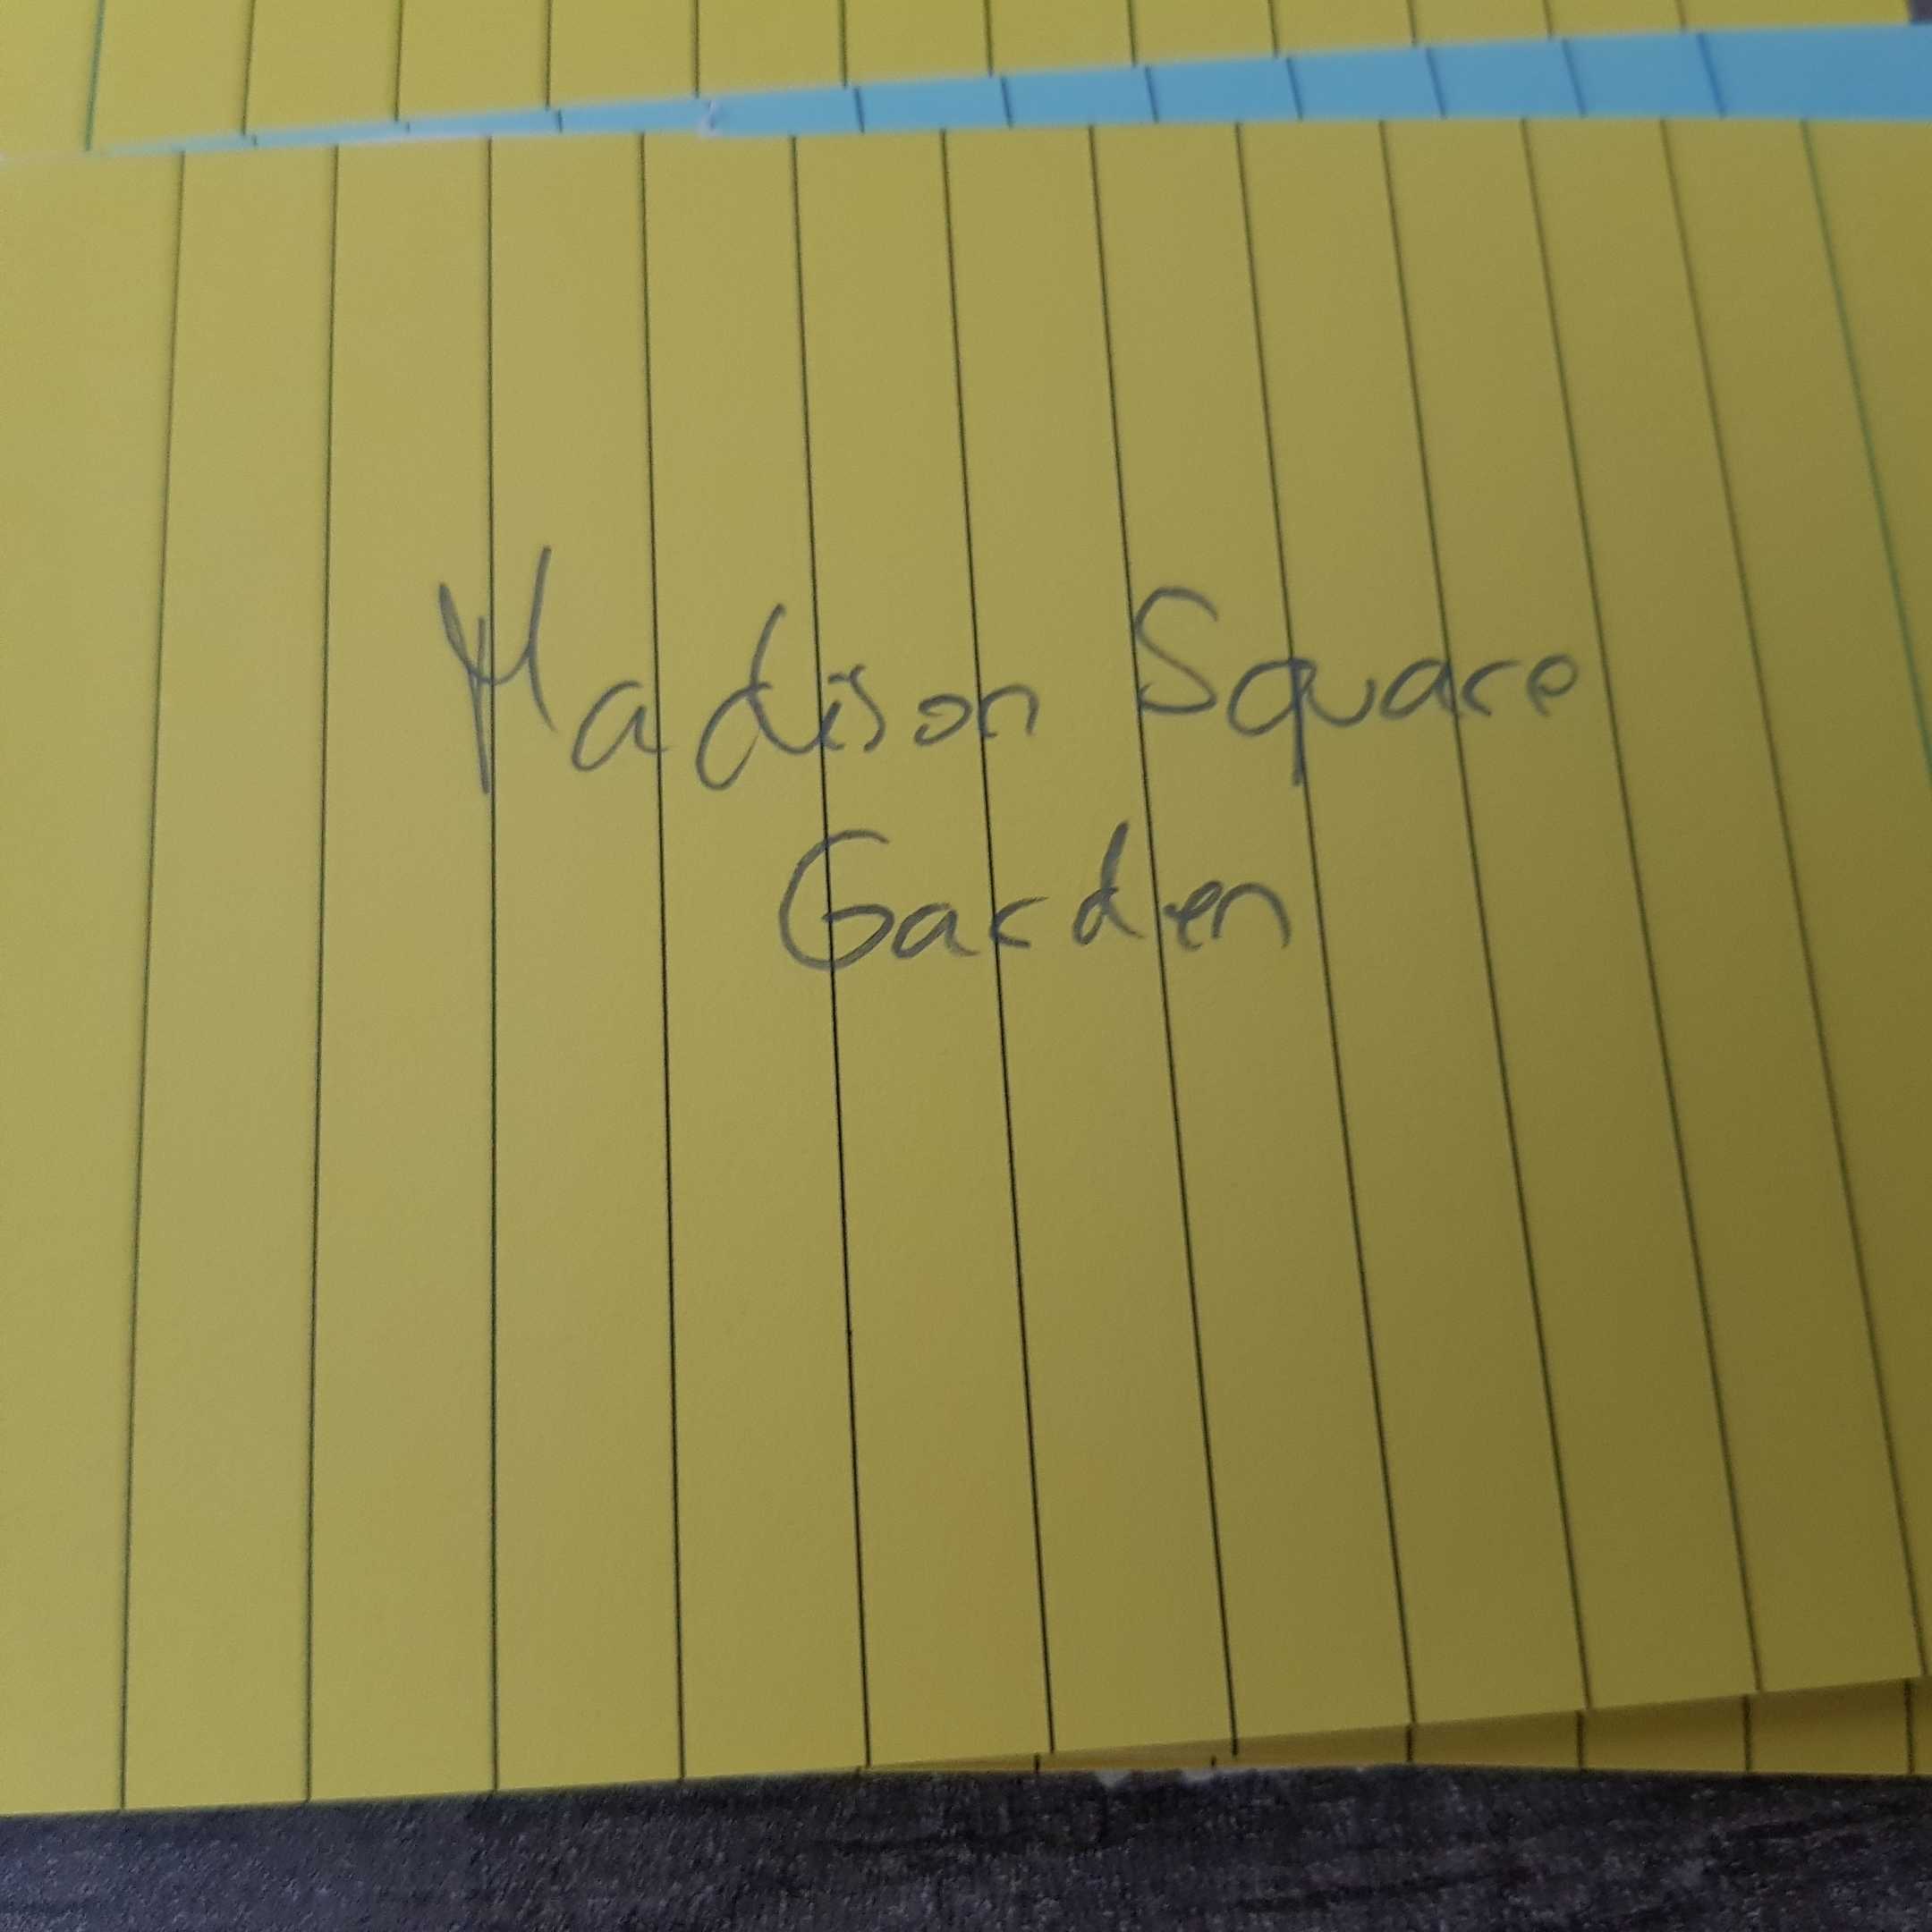 Madison Square
Garden